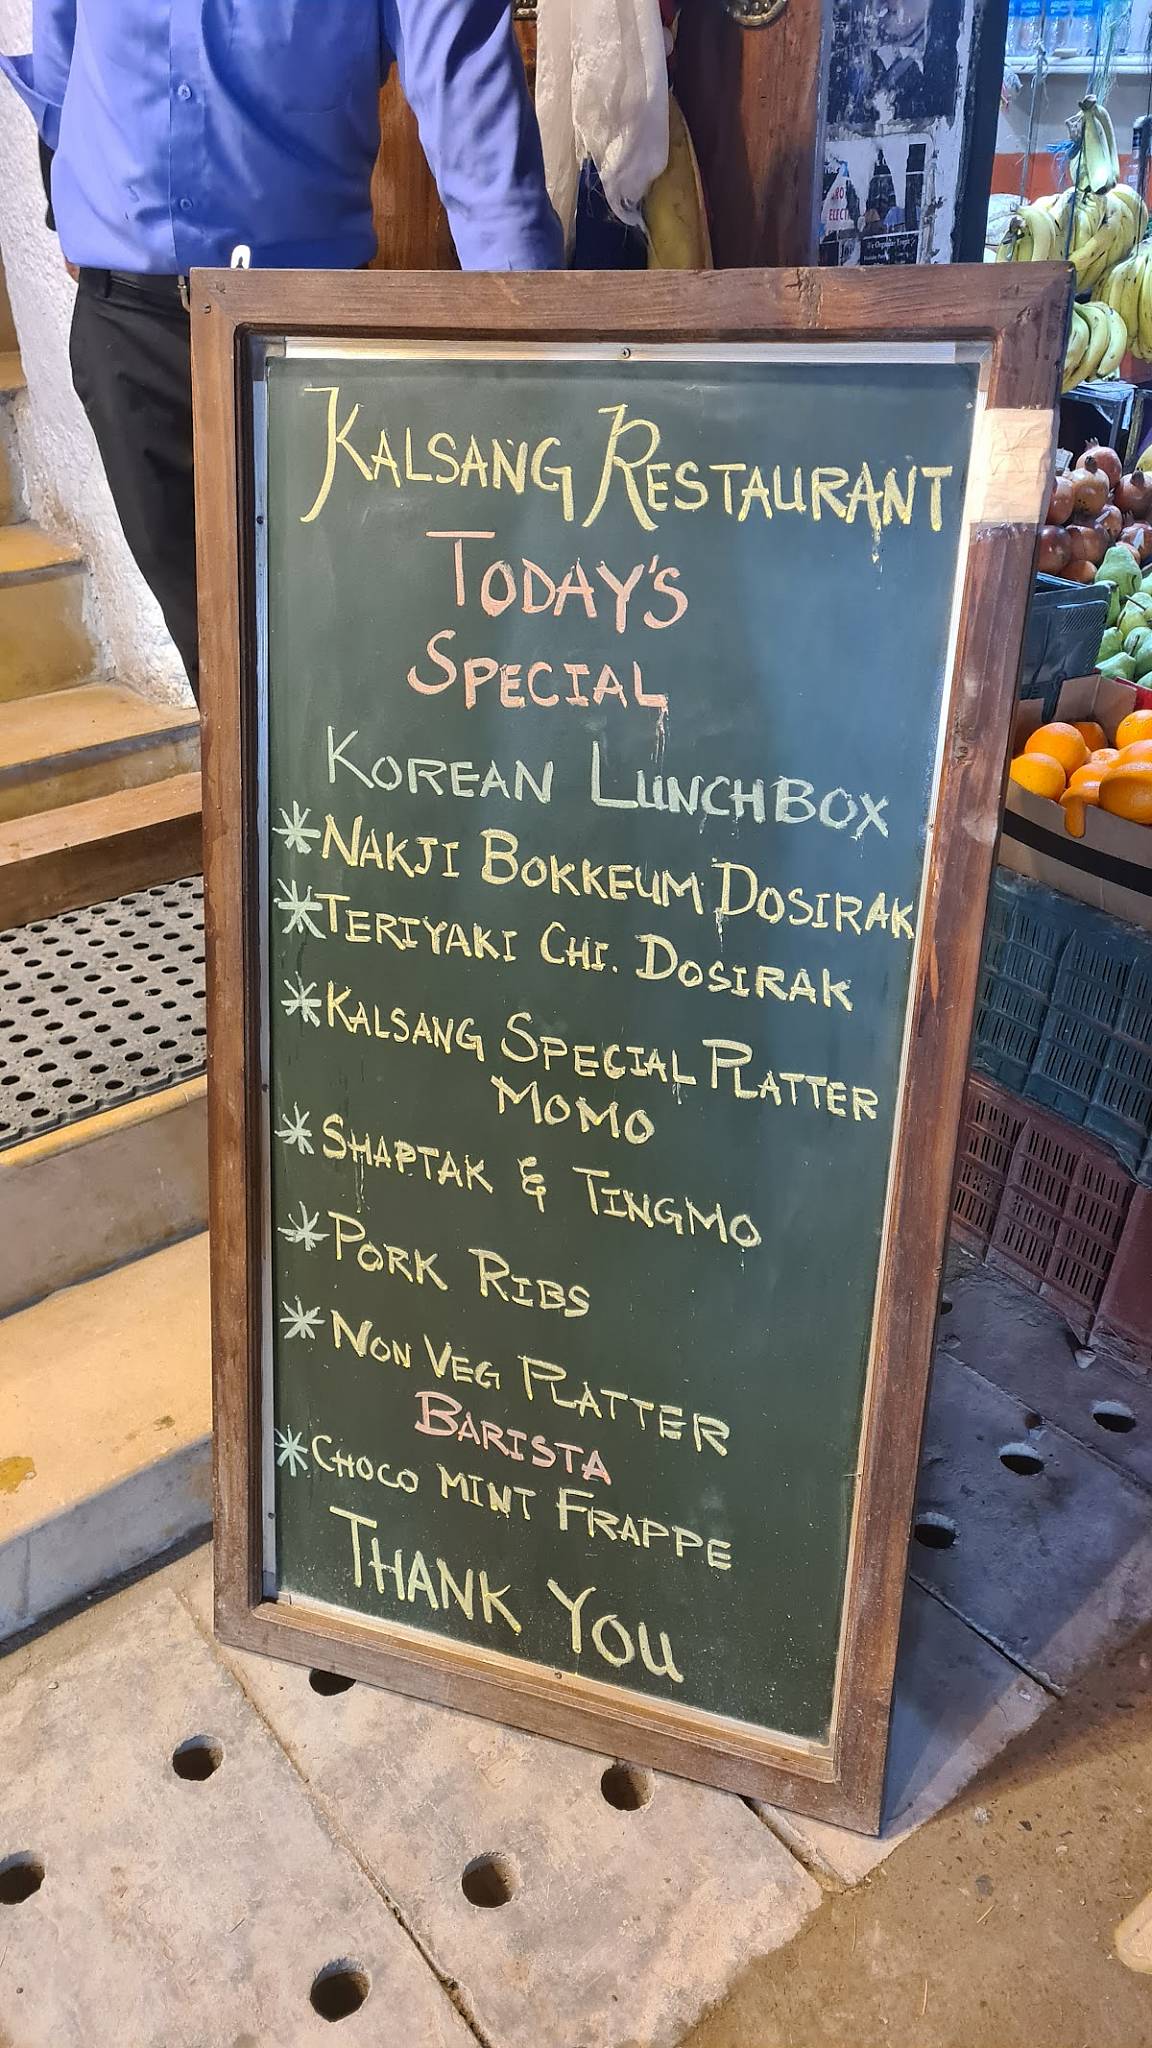 KALSANG RESTAURANT
TODAY'S
SPECIAL
KOREAN LUNCHBOX
* NAKJI BOKKEUM DOSIRAK
* TERIYAKI CHI. DOSIRAK
* KALSANG SPECIAL PLATTER
MOMO
* SHAPTAK & TINGMO
* PORK RIBS
* NON VEG PLATTER
BARISTA
* CHOCO MINT FRAPPE
THANK YOU